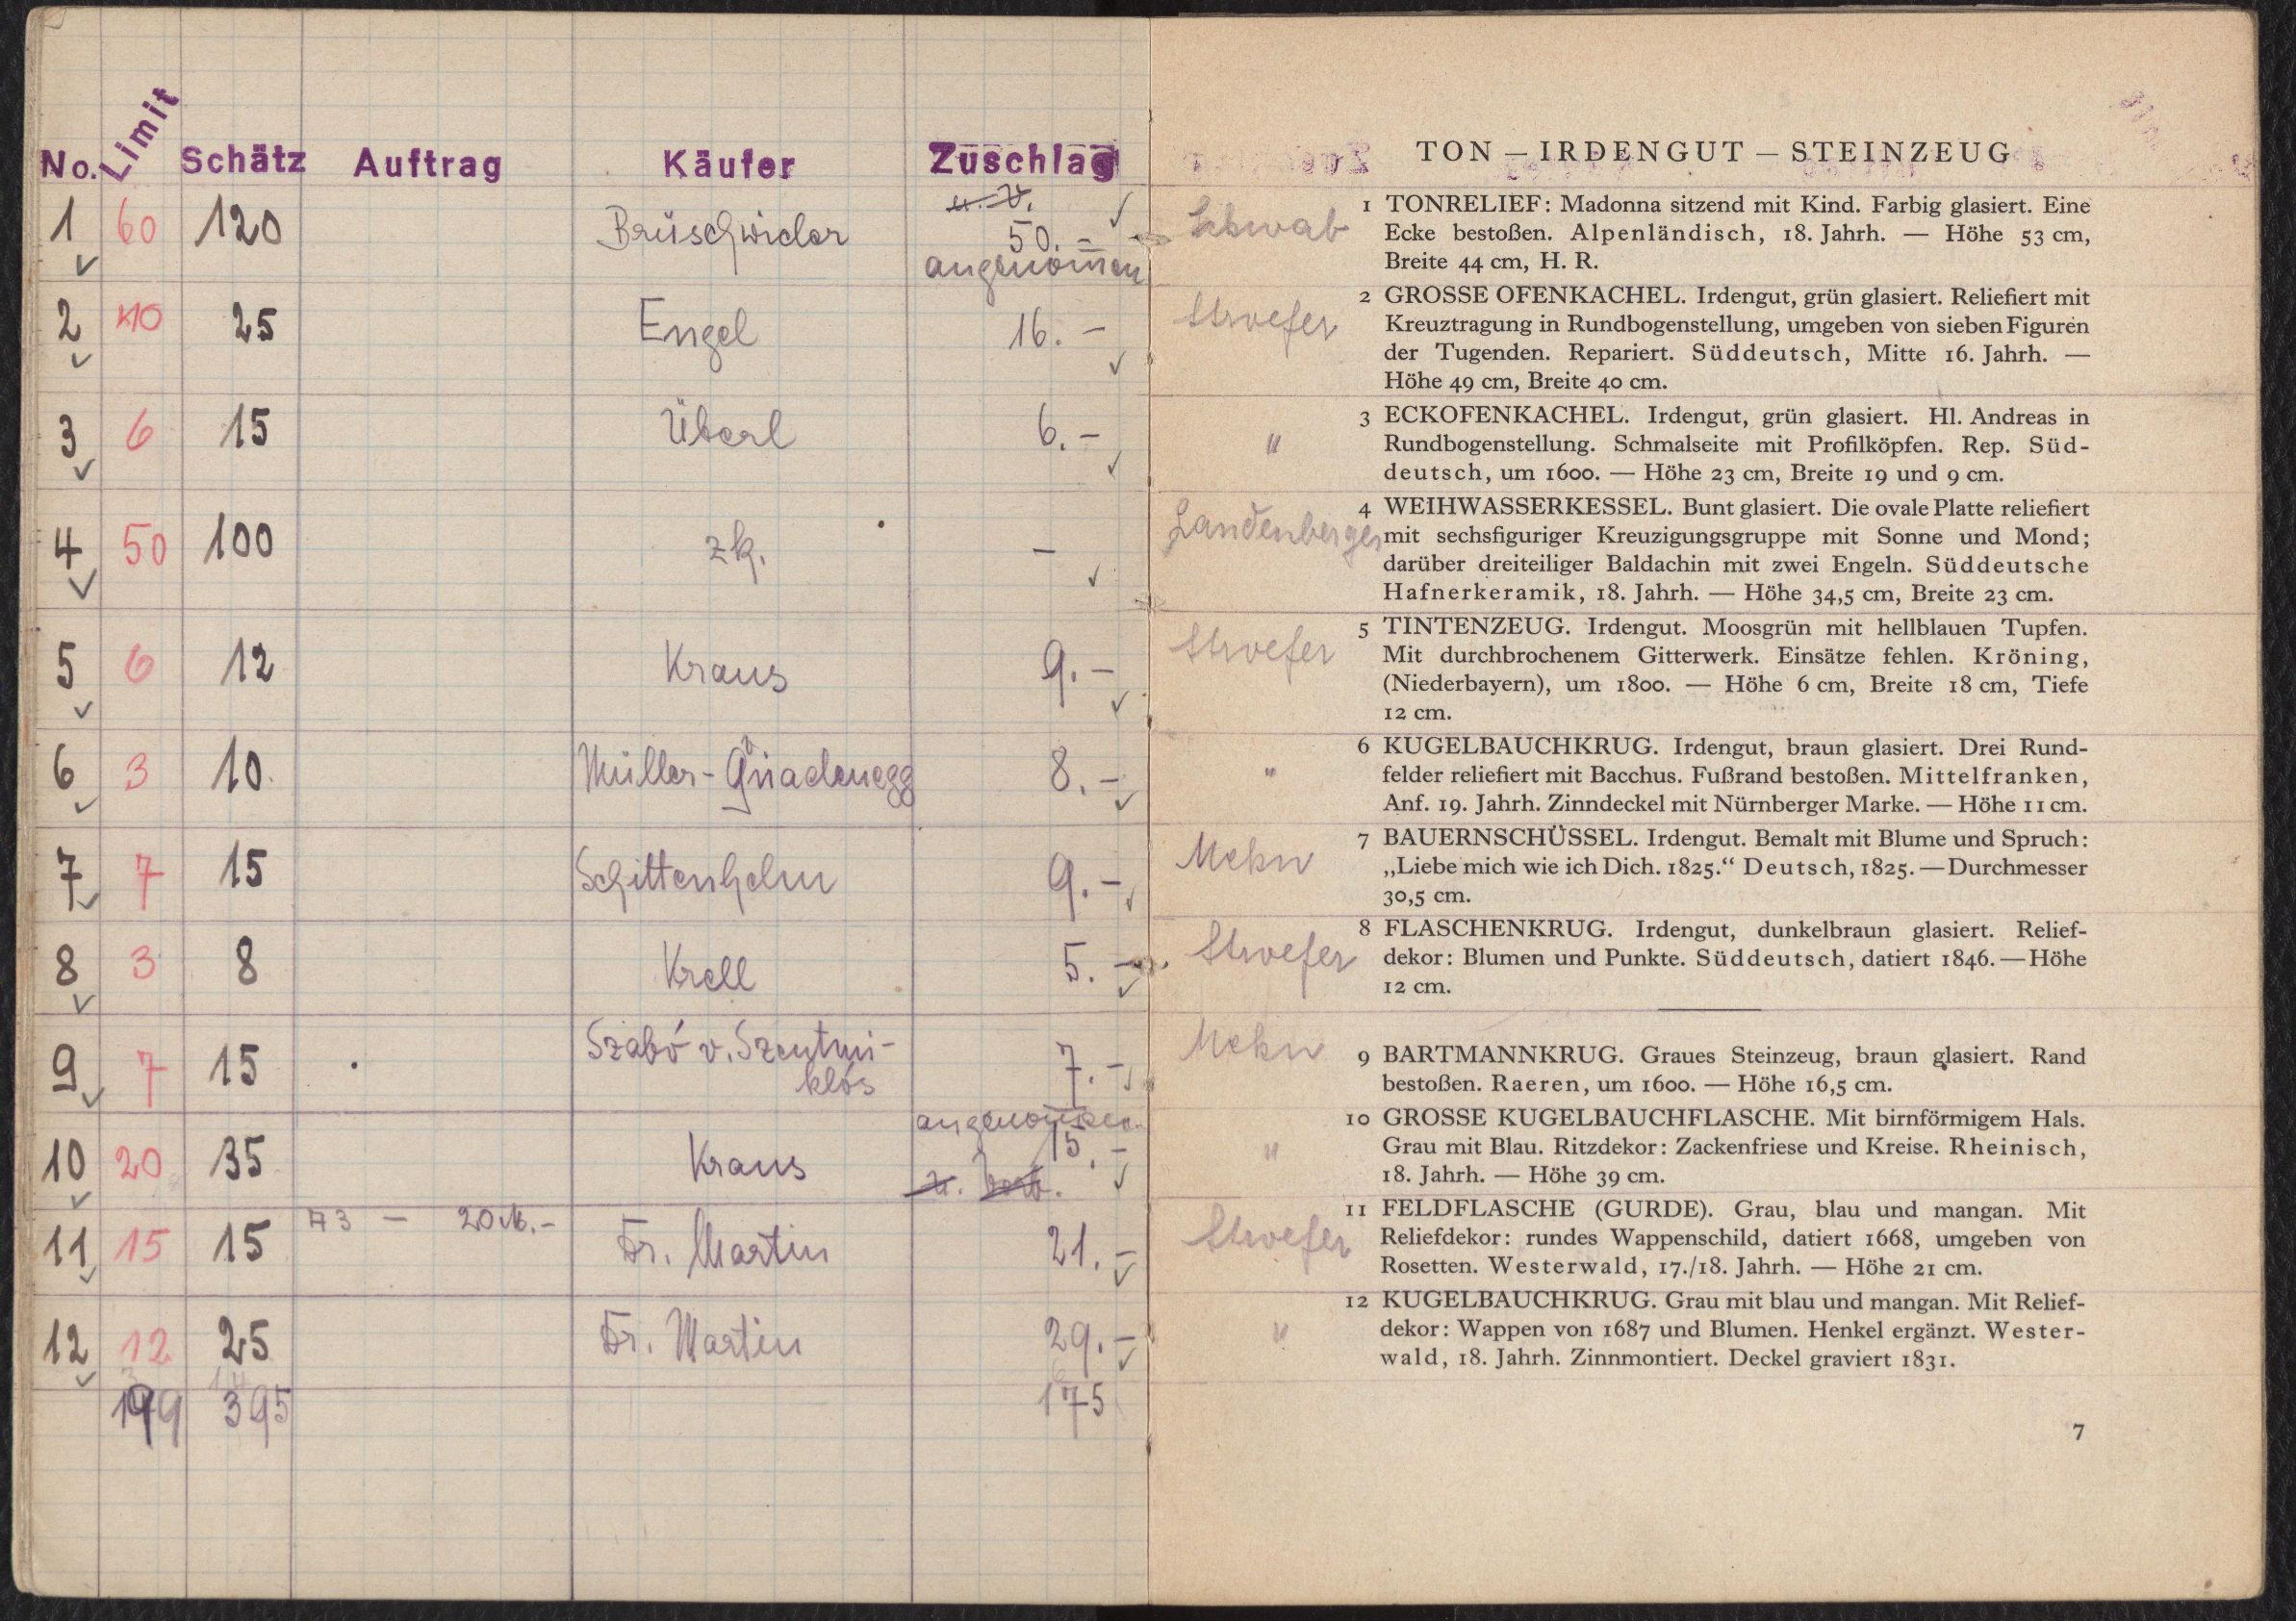 No. Limit Schätz Auftrag Käufer Zuschlag
u. V.
1 60 120 Brüschwider 50.-
angenommen
2 10 25 Engel 16.-
3 6 15 Überl 6.-
4 50 100 zk. -
5 6 12 Kraus 9.-
6 3 10 Müller-Gnadenegg 8.-
7 7 15 Schittenhelm 9.-
8 3 8 Krell 5.-
9 7 15 Szabó v. Szentmi-
klós 7.-
angenommen
10 20 35 Kraus 15.-
11 15 15 A3 - 20 M.- Dr. Martin 21.-
12 12 25 Dr. Martin 29.-
199 395 175
TON — IRDENGUT — STEINZEUG
Schwab 1 TONRELIEF: Madonna sitzend mit Kind. Farbig glasiert. Eine
Ecke bestoßen. Alpenländisch, 18. Jahrh. — Höhe 53 cm,
Breite 44 cm, H. R.
Stroefer 2 GROSSE OFENKACHEL. Irdengut, grün glasiert. Reliefiert mit
Kreuztragung in Rundbogenstellung, umgeben von sieben Figuren
der Tugenden. Repariert. Süddeutsch, Mitte 16. Jahrh. —
Höhe 49 cm, Breite 40 cm.
" 3 ECKOFENKACHEL. Irdengut, grün glasiert. Hl. Andreas in
Rundbogenstellung. Schmalseite mit Profilköpfen. Rep. Süd-
deutsch, um 1600. — Höhe 23 cm, Breite 19 und 9 cm.
Landenberger 4 WEIHWASSERKESSEL. Bunt glasiert. Die ovale Platte reliefiert
mit sechsfiguriger Kreuzigungsgruppe mit Sonne und Mond;
darüber dreiteiliger Baldachin mit zwei Engeln. Süddeutsche
Hafnerkeramik, 18. Jahrh. — Höhe 34,5 cm, Breite 23 cm.
Stroefer 5 TINTENZEUG. Irdengut. Moosgrün mit hellblauen Tupfen.
Mit durchbrochenem Gitterwerk. Einsätze fehlen. Kröning,
(Niederbayern), um 1800. — Höhe 6 cm, Breite 18 cm, Tiefe
12 cm.
" 6 KUGELBAUCHKRUG. Irdengut, braun glasiert. Drei Rund-
felder reliefiert mit Bacchus. Fußrand bestoßen. Mittelfranken,
Anf. 19. Jahrh. Zinndeckel mit Nürnberger Marke. — Höhe 11 cm.
Mehn 7 BAUERNSCHÜSSEL. Irdengut. Bemalt mit Blume und Spruch:
„Liebe mich wie ich Dich. 1825.“ Deutsch, 1825. — Durchmesser
30,5 cm.
Stroefer 8 FLASCHENKRUG. Irdengut, dunkelbraun glasiert. Relief-
dekor: Blumen und Punkte. Süddeutsch, datiert 1846. — Höhe
12 cm.
Mehn 9 BARTMANNKRUG. Graues Steinzeug, braun glasiert. Rand
bestoßen. Raeren, um 1600. — Höhe 16,5 cm.
" 10 GROSSE KUGELBAUCHFLASCHE. Mit birnförmigem Hals.
Grau mit Blau. Ritzdekor: Zackenfriese und Kreise. Rheinisch,
18. Jahrh. — Höhe 39 cm.
Stroefer 11 FELDFLASCHE (GURDE). Grau, blau und mangan. Mit
Reliefdekor: rundes Wappenschild, datiert 1668, umgeben von
Rosetten. Westerwald, 17./18. Jahrh. — Höhe 21 cm.
" 12 KUGELBAUCHKRUG. Grau mit blau und mangan. Mit Relief-
dekor: Wappen von 1687 und Blumen. Henkel ergänzt. Wester-
wald, 18. Jahrh. Zinnmontiert. Deckel graviert 1831.
7